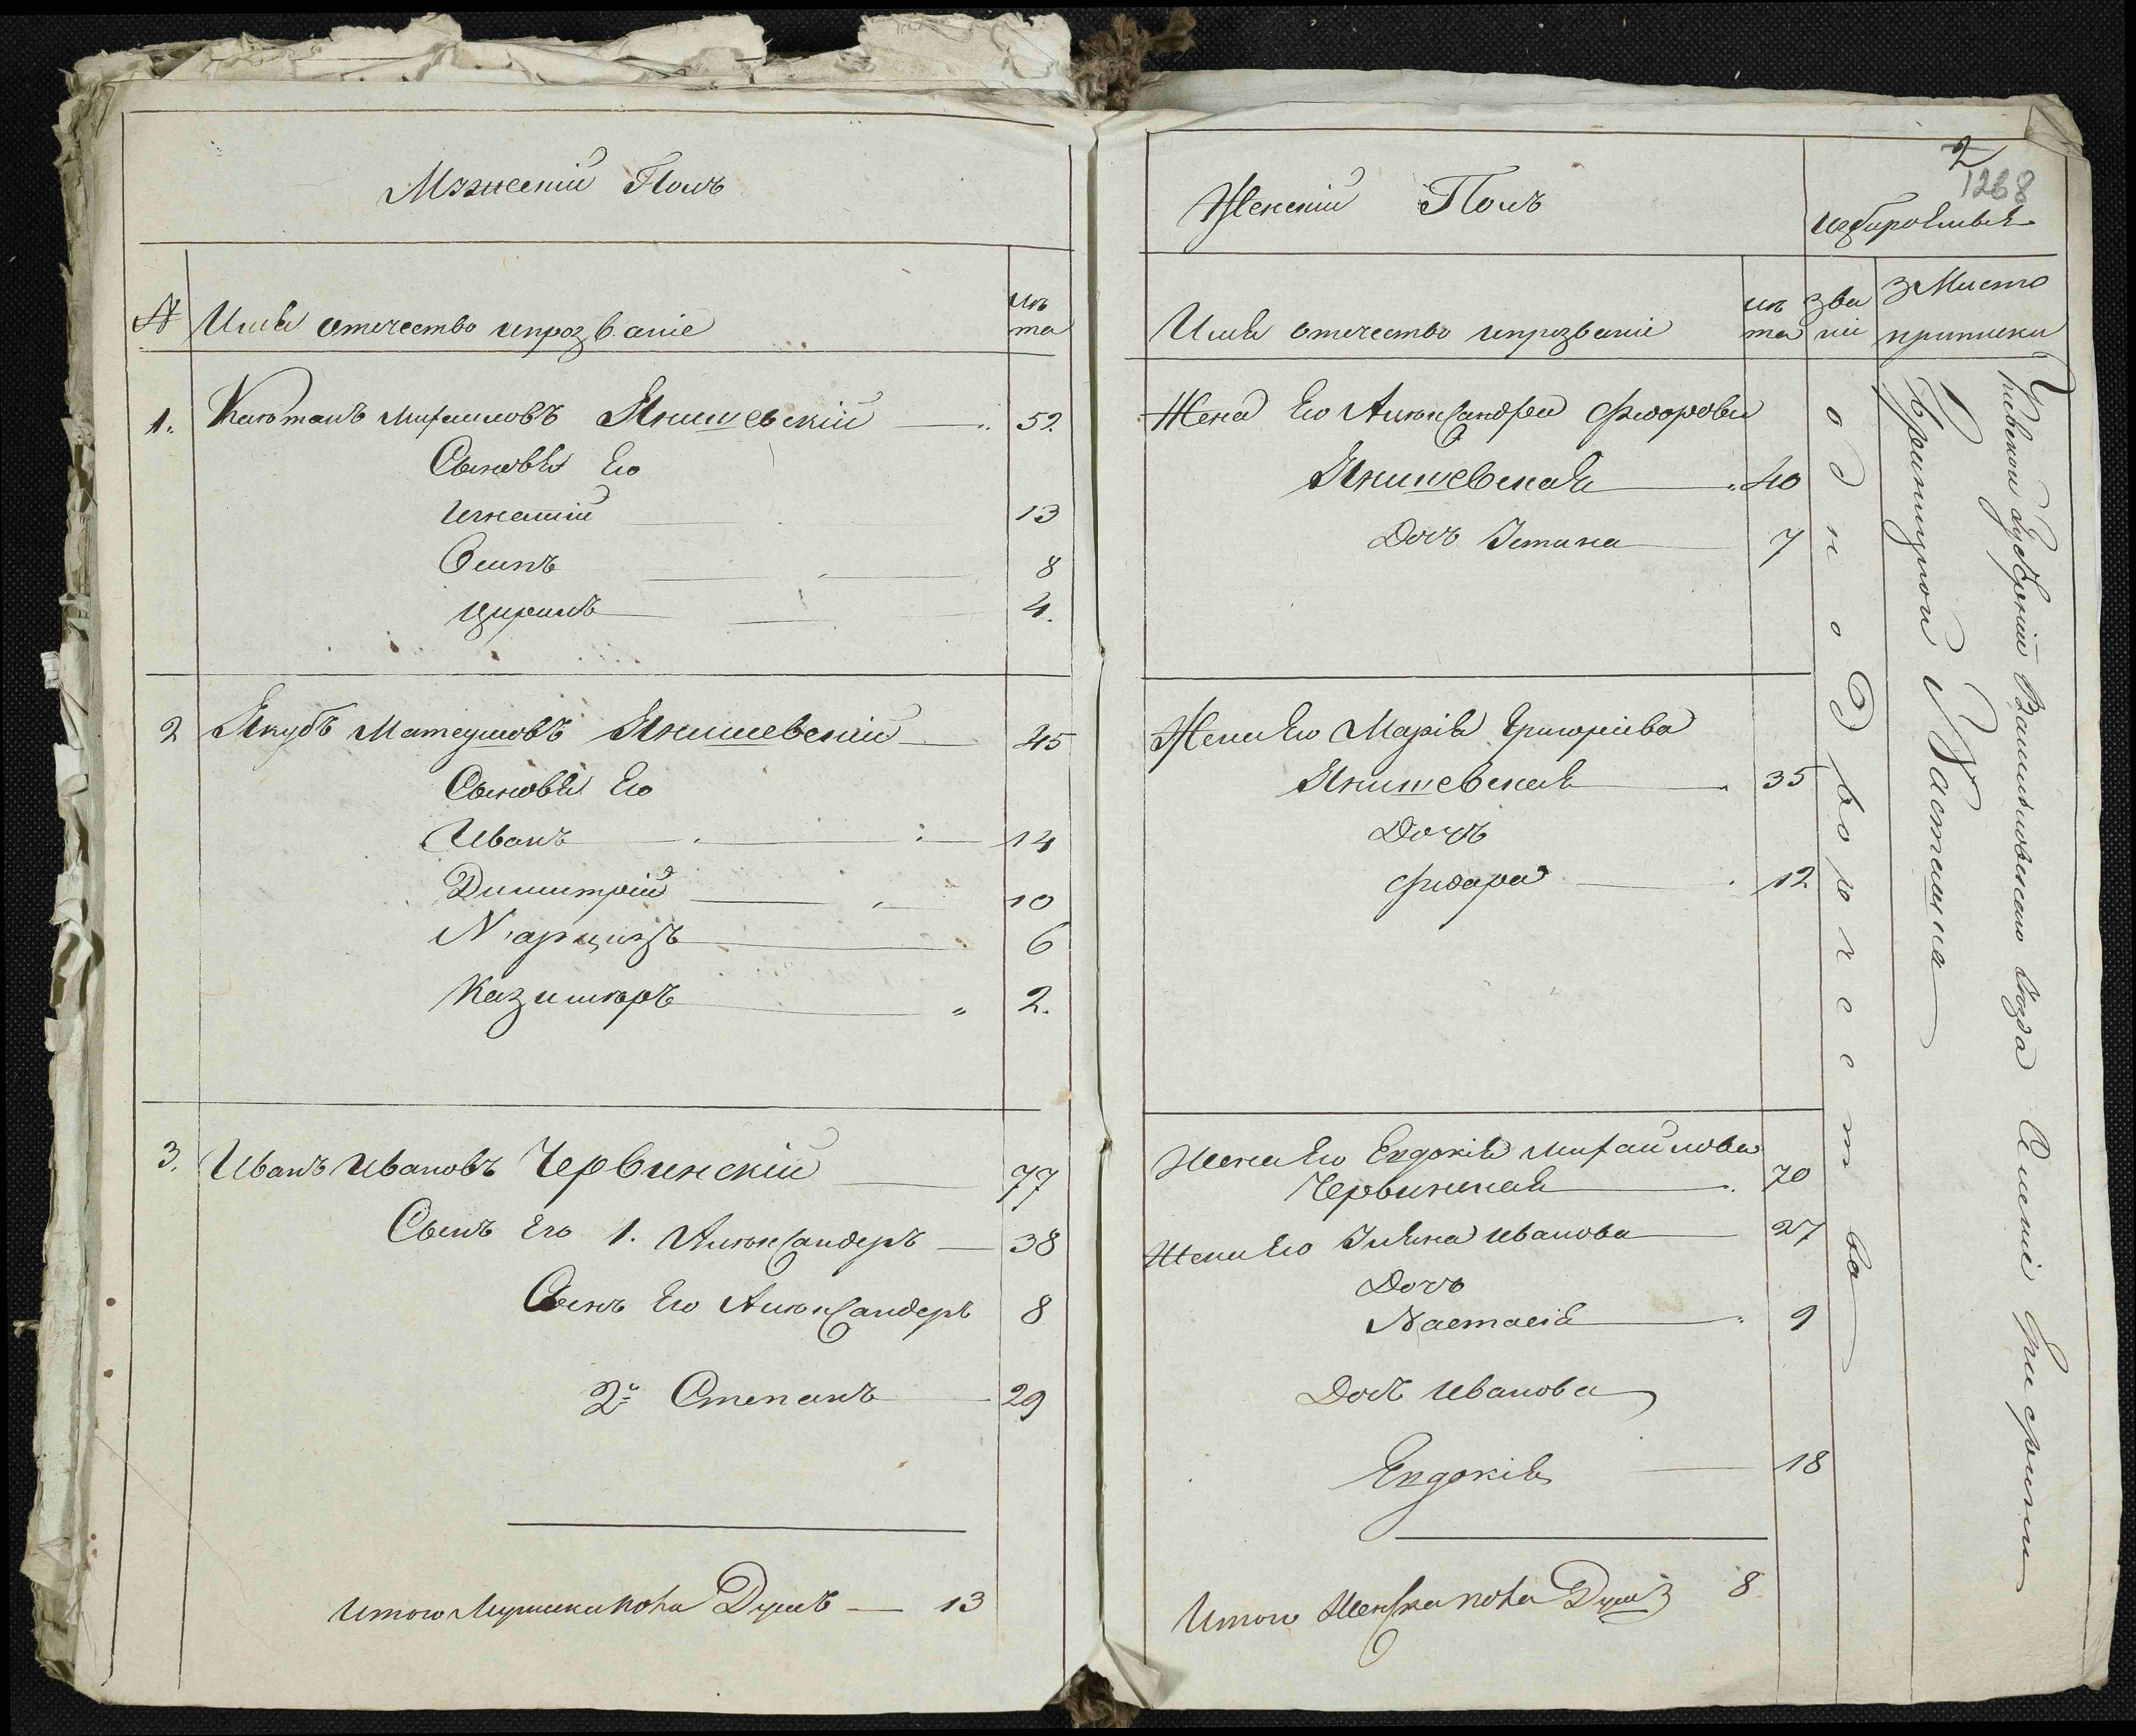 Мужескій Полъ
№
Имя отечество ипрозваніе
лѣ
та
1. Каютанъ Михаиловъ Янишевскій 52.
Сыновья Его
Игнатій 13
Осипъ 8
Цирилъ 4.
2 Якубъ Матеушовъ Янишевскій 45
Сыновья Его
Иванъ 14
Димитрій 10
Нарцизъ 6
Казимѣръ 2.
3. Иванъ Ивановъ Червинскій 77
Сынъ Его 1. Алѣксандеръ 38
Сынъ Его Алѣксандеръ 8
2й Степанъ 29
Итого Мужеска пола Душъ — 13
Женскій Полъ
2
1268
Имя отечество ипрозваніе
лѣ
та
зва
ніе
Мѣсто
приписки
Жена Его Алѣксандра Фіодорова
Янишевская 40
Дочъ Юстина 7
Жена Его Марія Григоріева
Янишевская 35
Дочъ
Фидора 12
Жена Его Евдокія Михайлова
Червинская 70
Жена Его Иванова 27
Дочъ
Настасія 9
Дочъ Иванова
Евдокія 18
Итого Женска пола Душъ 8
однодворчества
Киевской Губерніи Василковскаго Уезда